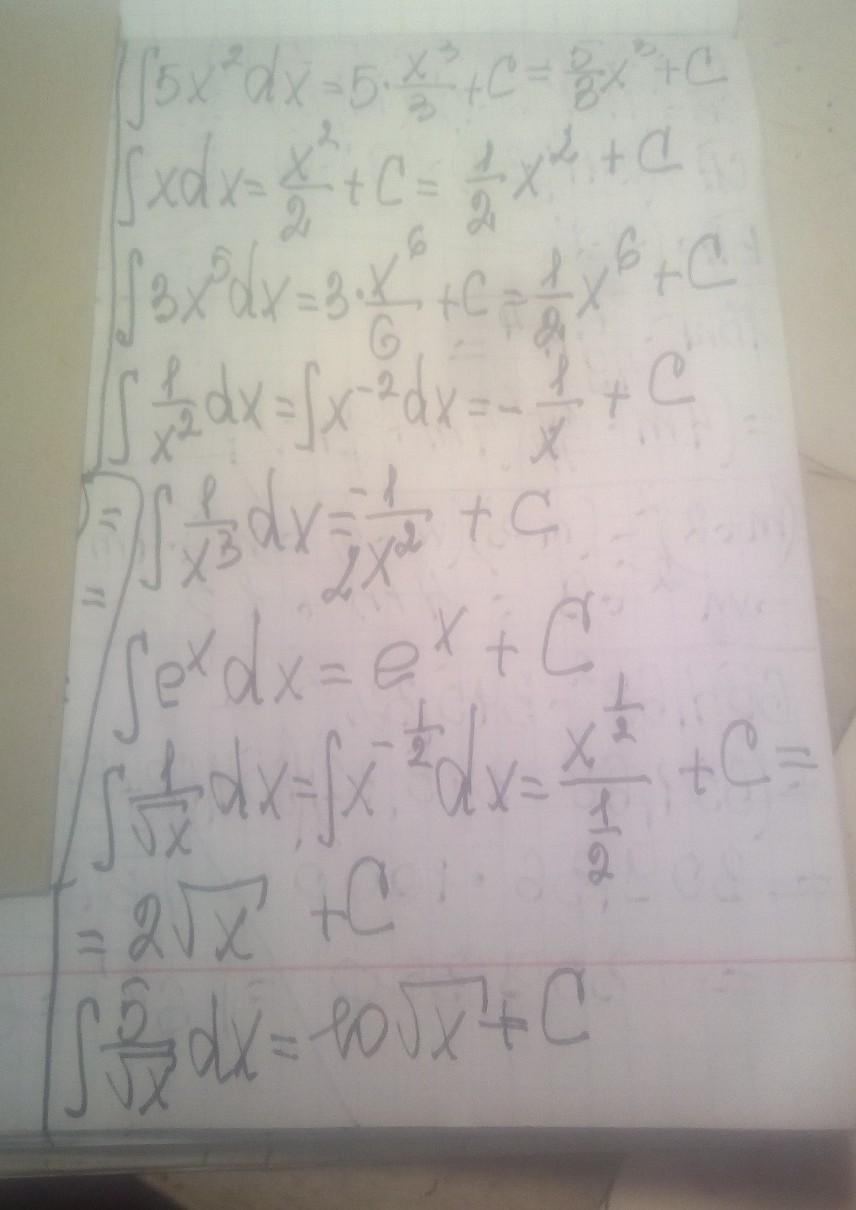 ∫5x²dx=5·x³/3+C=5/3x³+C
∫xdx=x²/2+C=1/2x²+C
∫3x⁵dx=3·x⁶/6+C=1/2x⁶+C
∫1/x²dx=∫x⁻²dx=-1/x+C
= ∫1/x³dx=-1/2x²+C
=
∫eˣdx=eˣ+C
∫1/√x dx=∫x^(-1/2)dx=x^(1/2)/(1/2)+C=
=2√x+C
∫5/√x dx=10√x+C